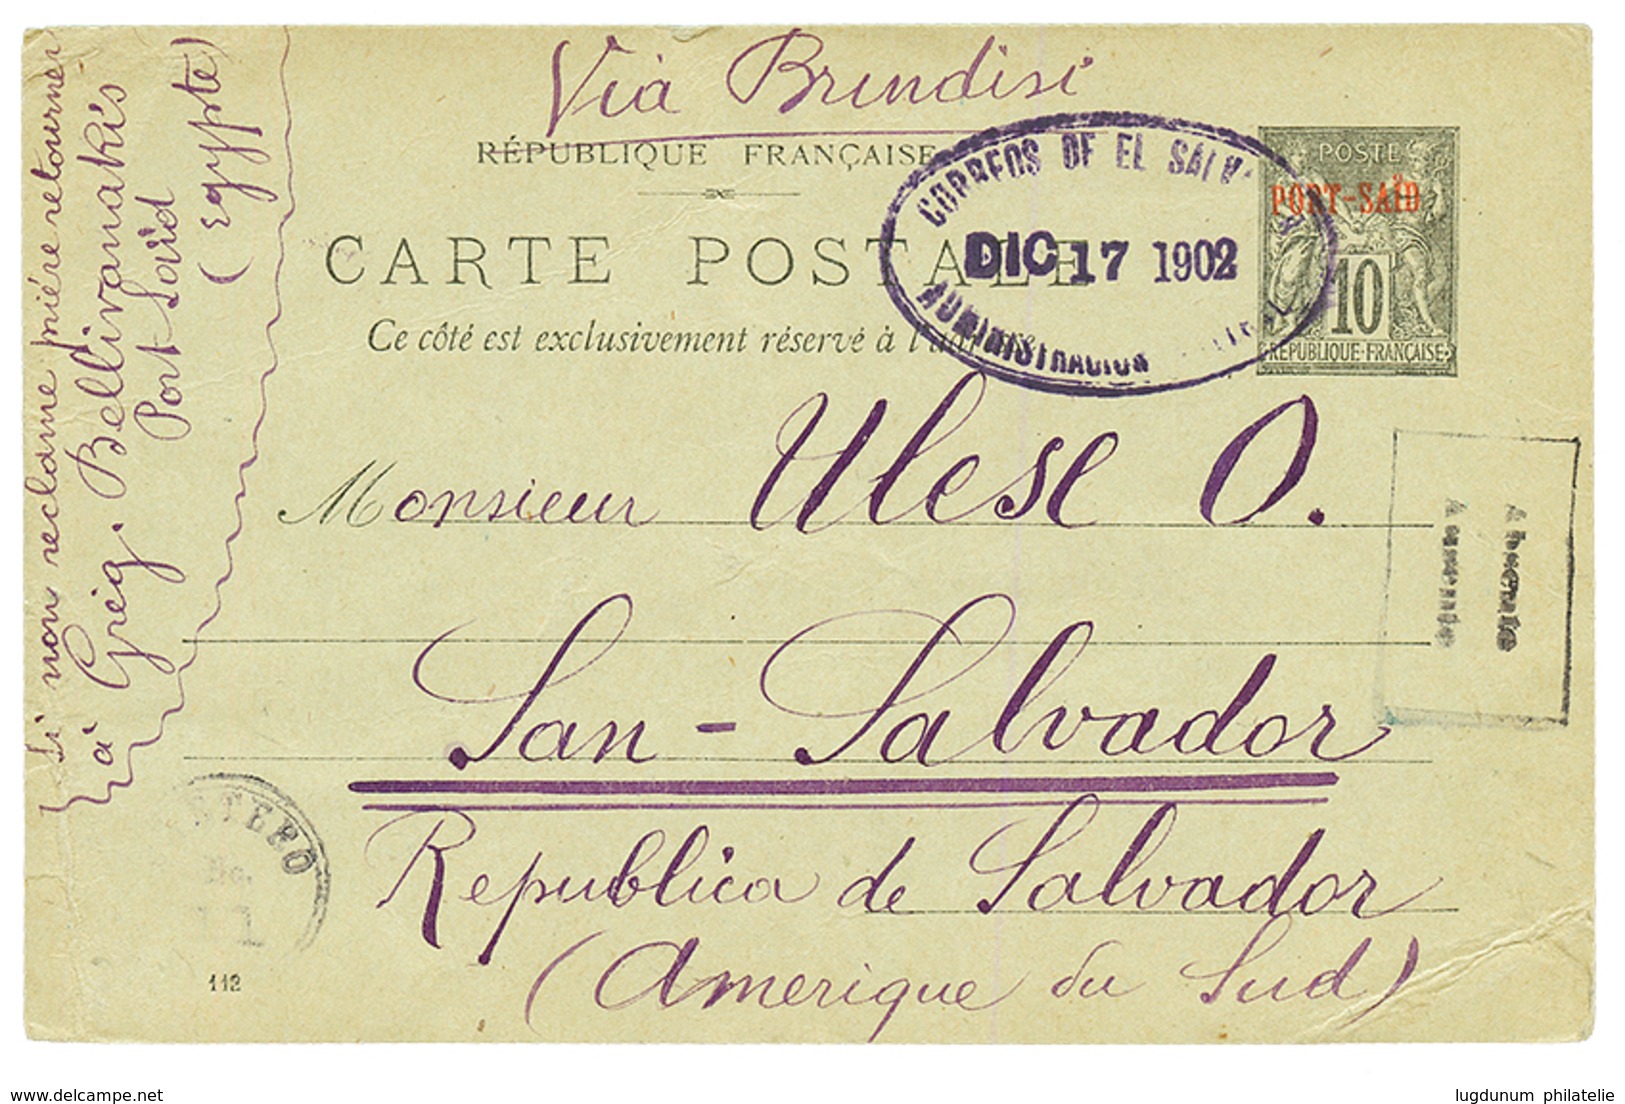 Via Brindisi
RÉPUBLIQUE FRANÇAISE
CARTE POSTALE
Ce côté est exclusivement réservé à l'adresse
CORREOS DE EL SALV
DIC 17 1902
ADMINISTRACION
POSTE
PORT-SAÏD
10
REPUBLIQUE FRANÇAISE
Si non reclame prière retourner
à Grég. Bellivanakis
Port Saïd
(Egypte)
Monsieur Ulese O.
San-Salvador
Republica de Salvador
(Amerique du Sud)
Absente
Ausente
112
www.delcampe.net
lugdunum philatelie